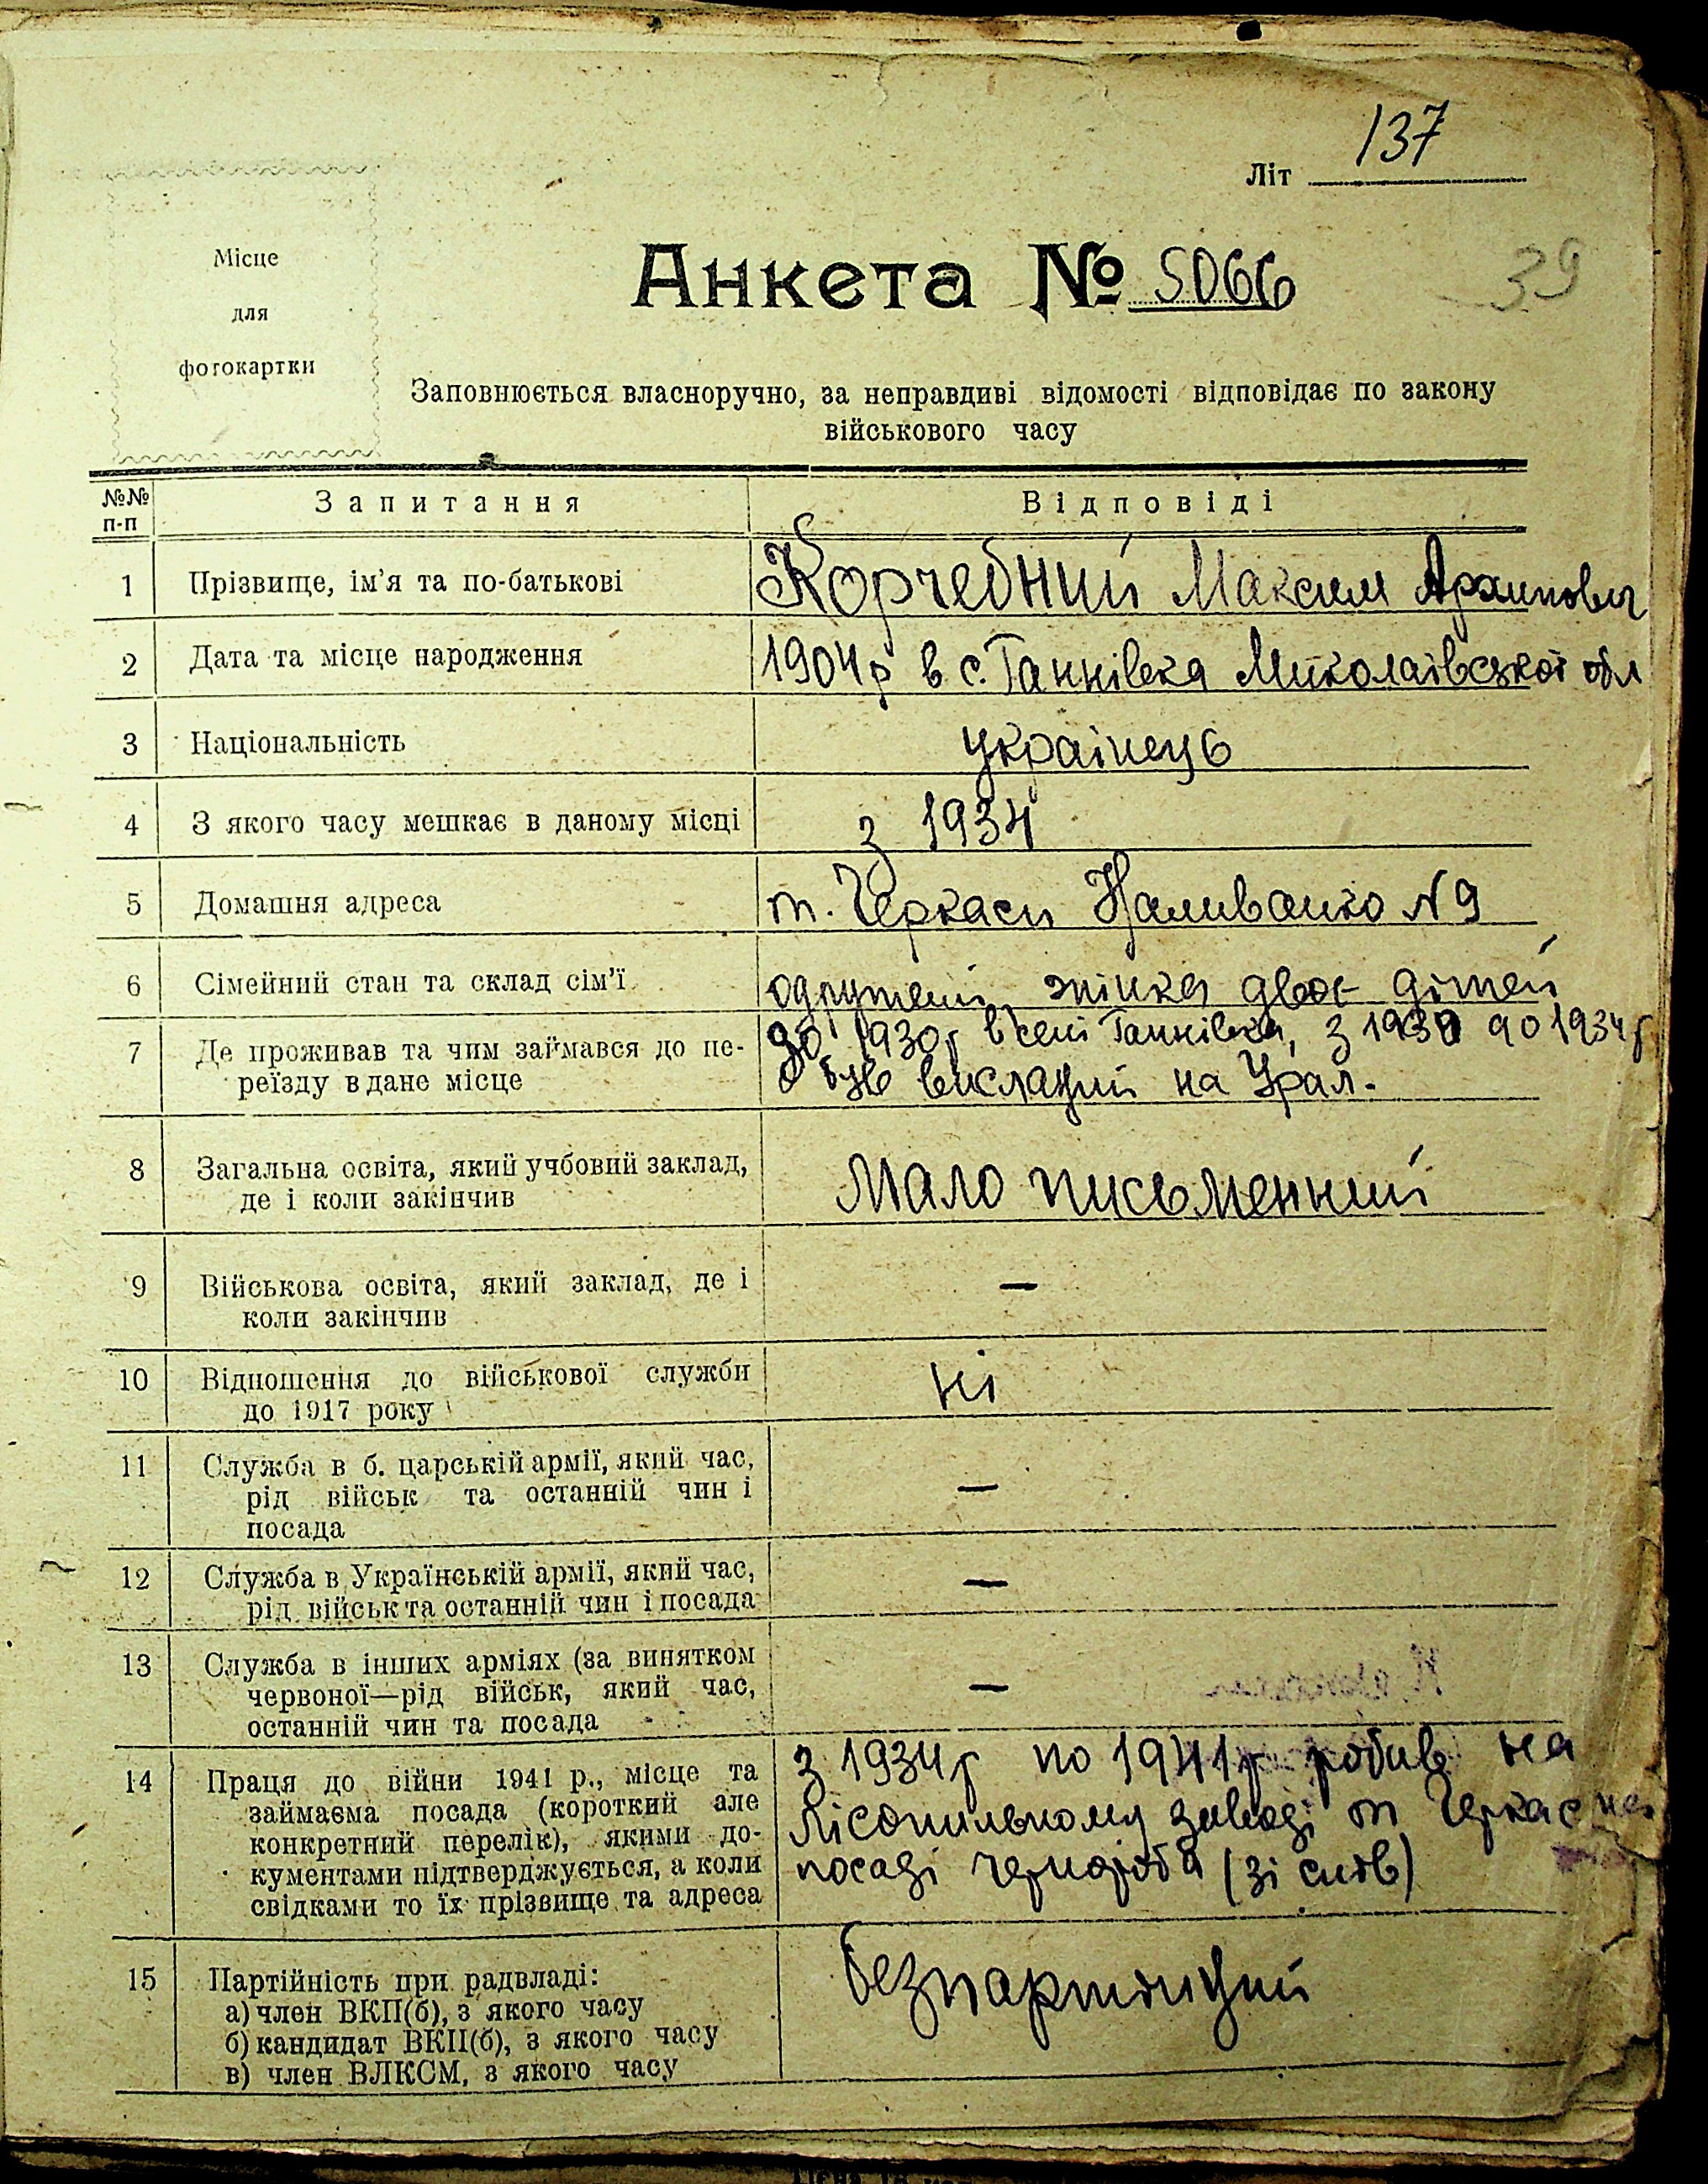 137
Літ
Місце
для
фотокартки
Анкета № 5066
39
Заповнюється власноручно, за неправдиві відомості відповідає по закону
військового часу
№№
п-п
Запитання
Відповіді
1 Прізвище, ім'я та по-батькові Корчебний Максим Архипович
2 Дата та місце народження 1904р в с. Ганнівка Миколаівської обл
3 Національність українець
4 З якого часу мешкає в даному місці з 1934
5 Домашня адреса m. Черкаси Наливайко N 9
6 Сімейний стан та склад сім'ї одружений жінка двоє дітей
7 Де проживав та чим займався до пе- до 1930р в селі Ганнівка, з 1930 до 1934р
реїзду в дане місце був висланий на Урал.
8 Загальна освіта, який учбовий заклад,
де і коли закінчив Мало письменний
9 Військова освіта, який заклад, де і —
коли закінчив
10 Відношення до військової служби ні
до 1917 року
11 Служба в б. царській армії, який час,
рід військ та останній чин і —
посада
12 Служба в Українській армії, який час, —
рід військ та останній чин і посада
13 Служба в інших арміях (за винятком
червоної—рід військ, який час, —
останній чин та посада
14 Праця до війни 1941 р., місце та з 1934р по 1941р робив на
займаєма посада (короткий але
конкретний перелік), якими до- лісопильному заводі m Черкас на
кументами підтверджується, а коли посаді чорнороба (зі слів)
свідками то їх прізвище та адреса
15 Партійність при радвладі: безпартійний
а) член ВКП(б), з якого часу
б) кандидат ВКП(б), з якого часу
в) член ВЛКСМ, з якого часу